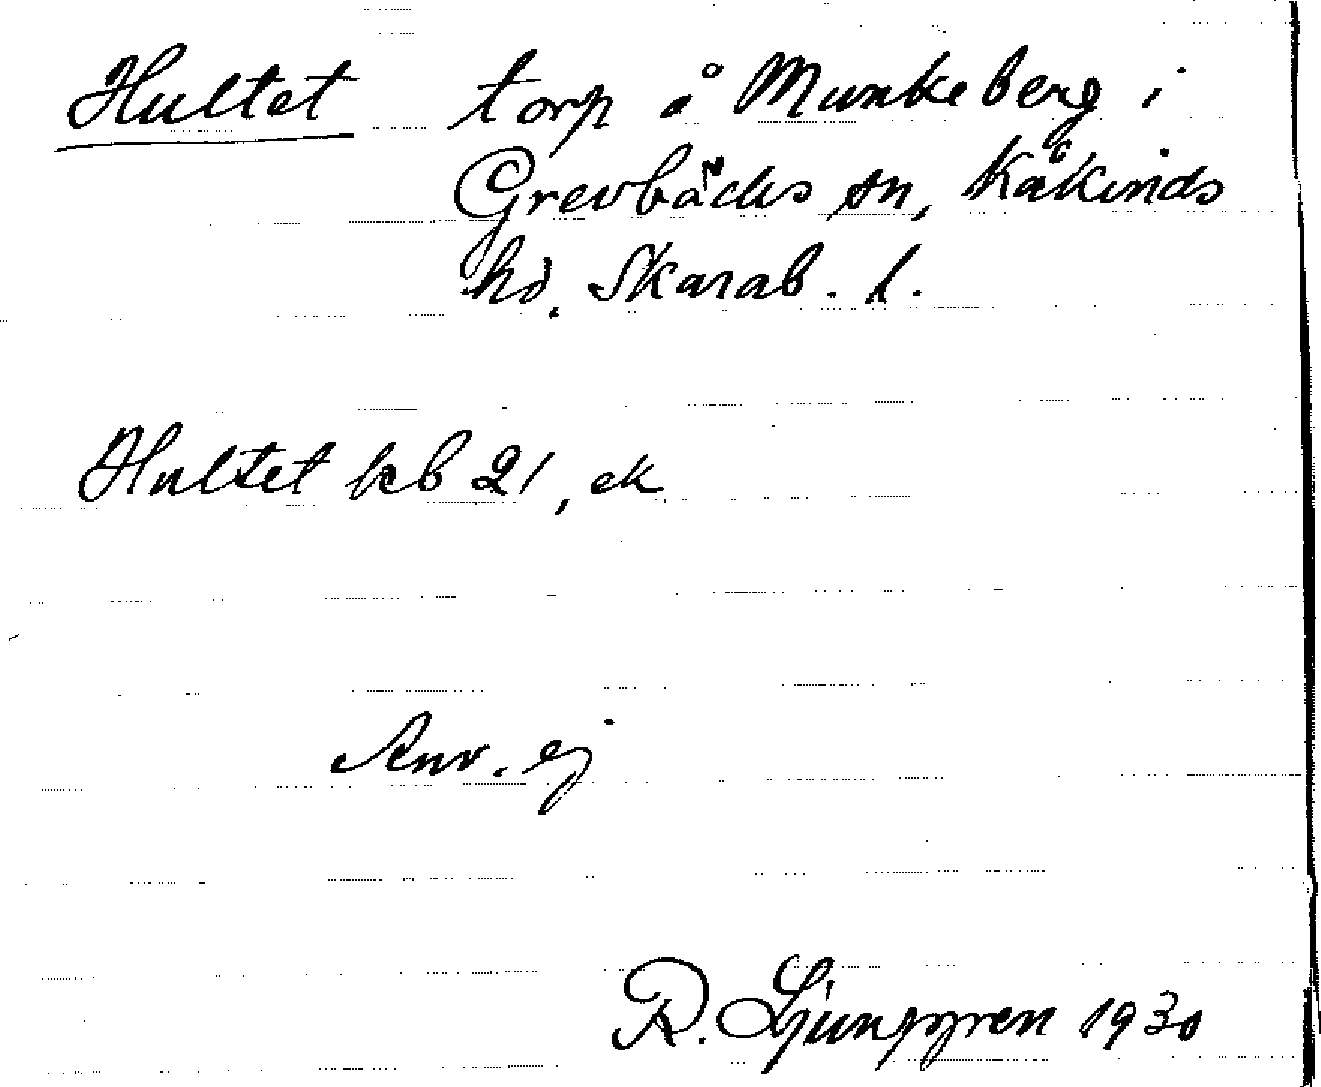 Hultet torp å Munkeberg i
Grevbäcks sn, Kåkinds
hd. Skarab. l.
Hultet kb 21, ek
Anv. ej
R. Ljunggren 1930